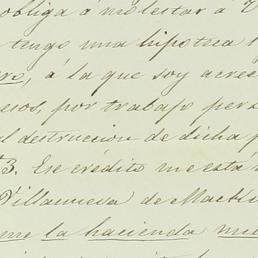 obliga á molestar á V
tengo una hipoteca
á la que soy acree
esos, por trabajo per
destruccion de dicha
3. Ese crédito me está
Villanueva de
la hacienda